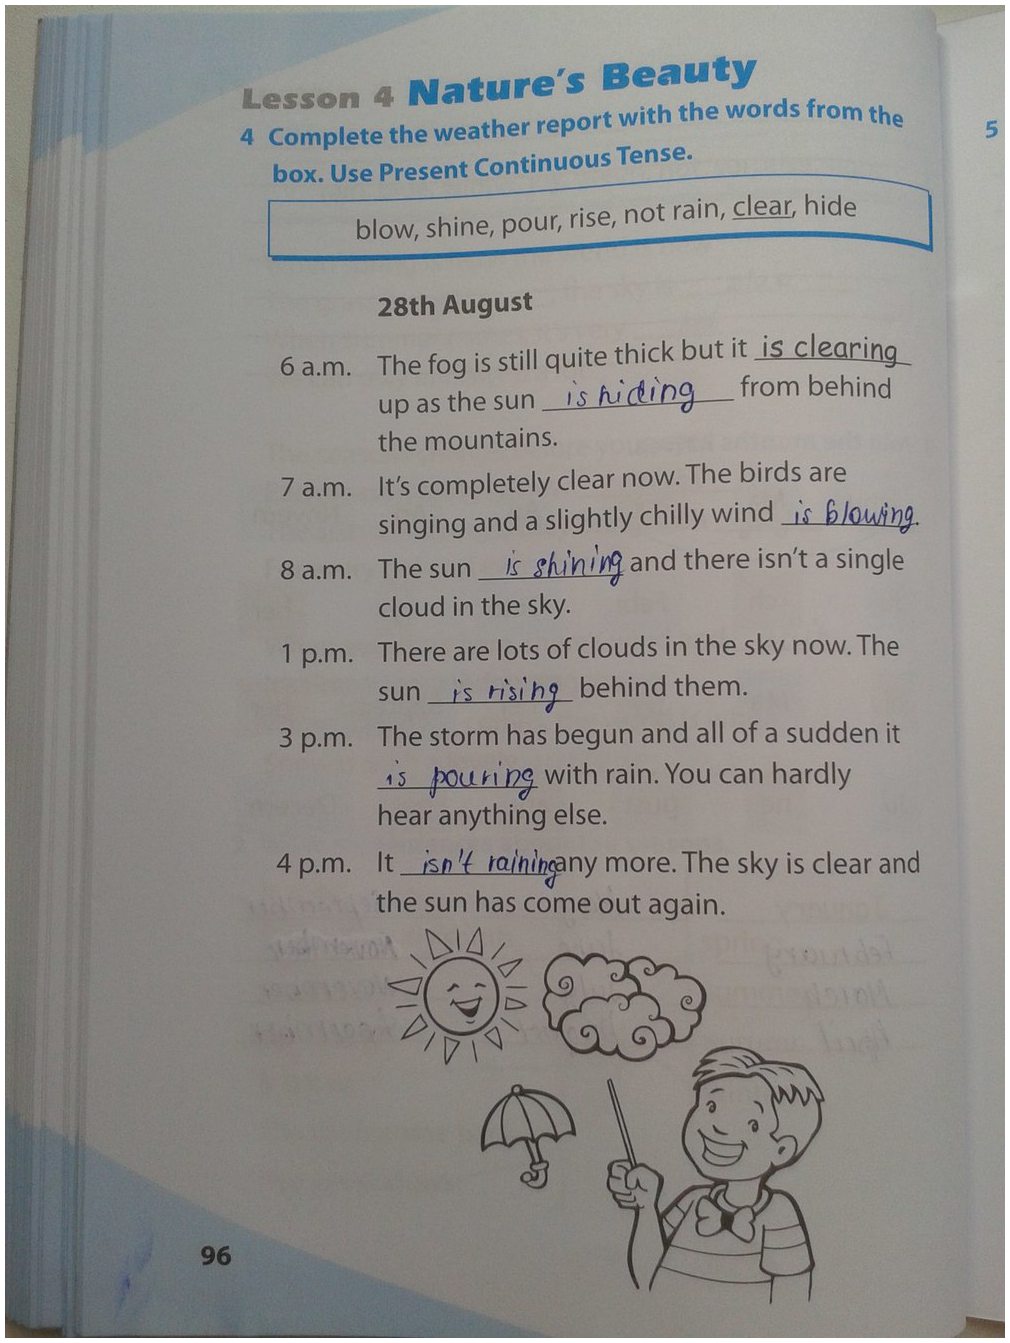 Lesson 4 Nature's Beauty
4 Complete the weather report with the words from the
box. Use Present Continuous Tense.
5
blow, shine, pour, rise, not rain, clear, hide
28th August
6 a.m. The fog is still quite thick but it is clearing
up as the sun is hiding from behind
the mountains.
7 a.m. It's completely clear now. The birds are
singing and a slightly chilly wind is blowing.
8 a.m. The sun is shining and there isn't a single
cloud in the sky.
1 p.m. There are lots of clouds in the sky now. The
sun is rising behind them.
3 p.m. The storm has begun and all of a sudden it
is pouring with rain. You can hardly
hear anything else.
4 p.m. It isn't raining any more. The sky is clear and
the sun has come out again.
96